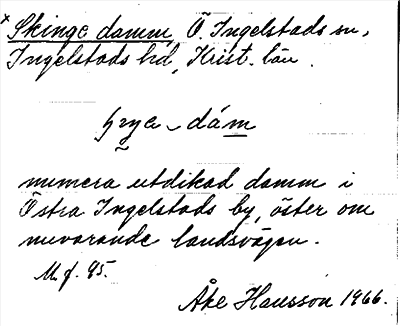 x Skinge damm, Ö. Ingelstads sn,
Ingelstads hd, Krist. län.
dám
numera utdikad damm i
Östra Ingelstads by, öster om
nuvarande landsvägen.
M. f. 95.
Åke Hansson 1966.